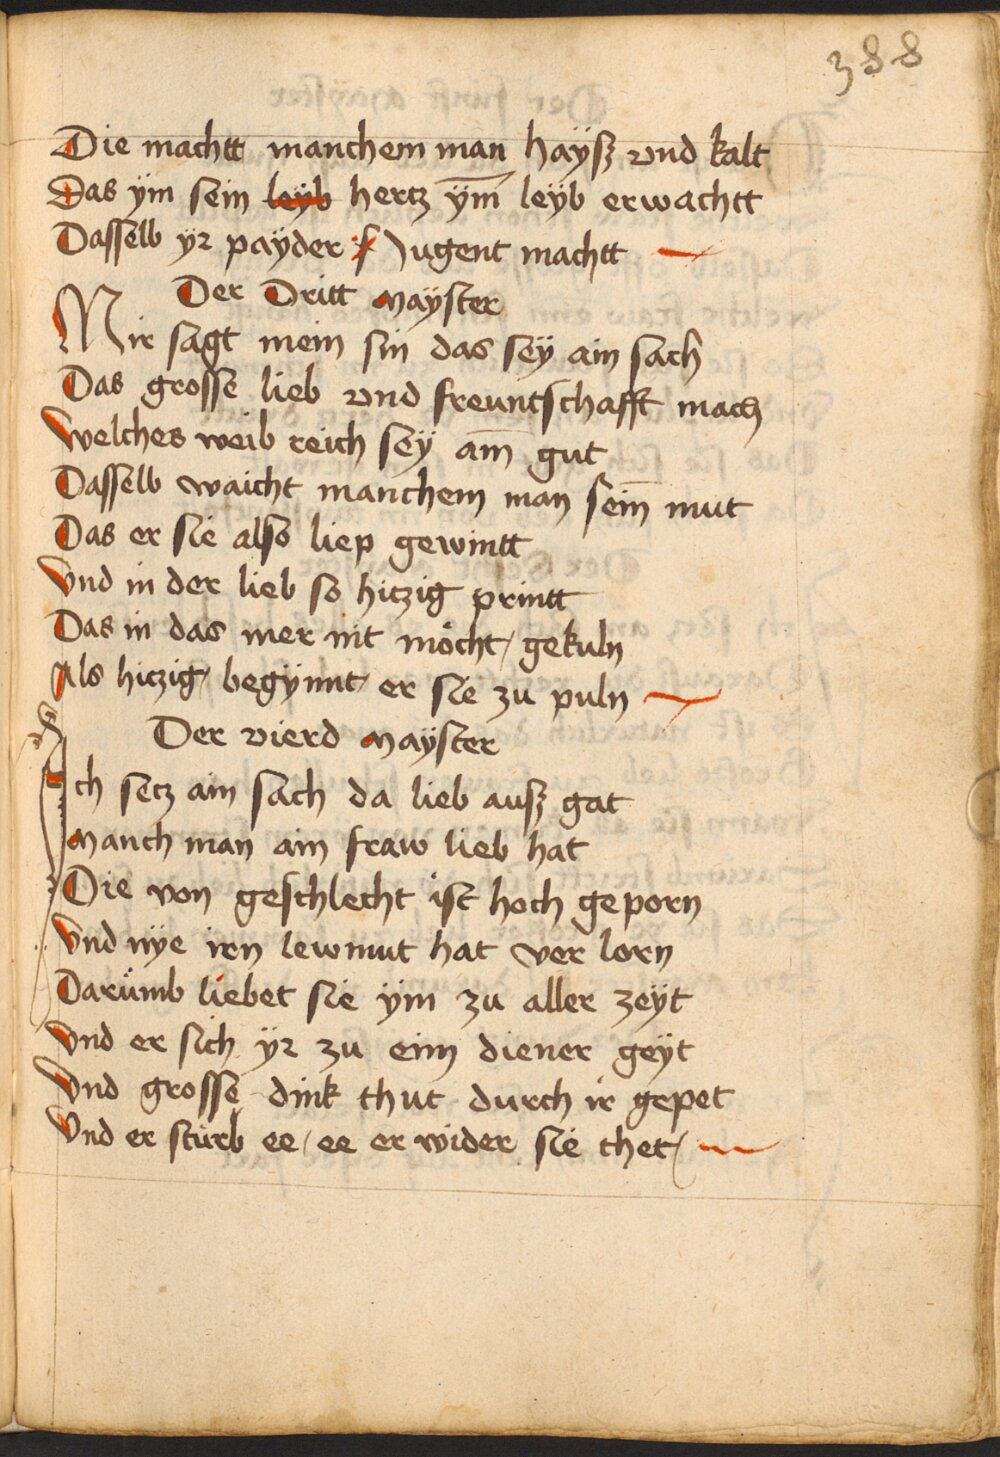 388
Die machtt manchem man hayſz vnd kalt
Das ÿm sein leÿb hertz ÿm̅ leÿb erwachtt
Daſſelb ÿr paÿder Jugent machtt
Der Dritt maÿster
Mir sagt mein sin das seÿ ain sach
Das groſſe lieb vnd freuntſchafft mach
welches weib reich seÿ am̅ gut
Daſſelb waicht manchem man sein̅ mut
Das er sie alſo liep gewintt
Vnd in der lieb so hitzig printt
Das in das mer nit möcht / gekuln
Als hitzig / begÿnnt er sie zu puln
Der vierd maÿster
Ich setz ain sach da lieb auſz gat
Manch man ain fraw lieb hat
Die von geſchlecht ist hoch geporn
Vnd nÿe irn lewmut hat ver lorn
Darümb liebet sie ÿm zu aller zeÿt
Vnd er sich ÿr zu eim diener geÿt
Vnd groſſe dink thut durch ir gepet
Vnd er stürb ee / ee er wider sie thet /